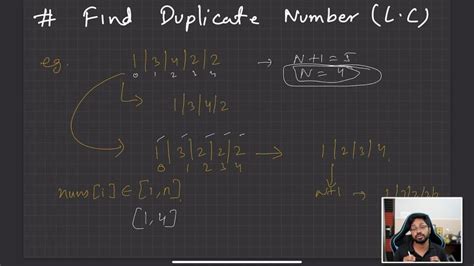 # Find Duplicate Number (L.C)
eg. 1|3|4|2|2 → N+1=5
0 1 2 3 4
N=4
1|3|4|2
1|3|2|2|2 → 1|2|3|4
0 1 2 3 4
nums[i] ∈ [1,n] n+1 →
[1,4]